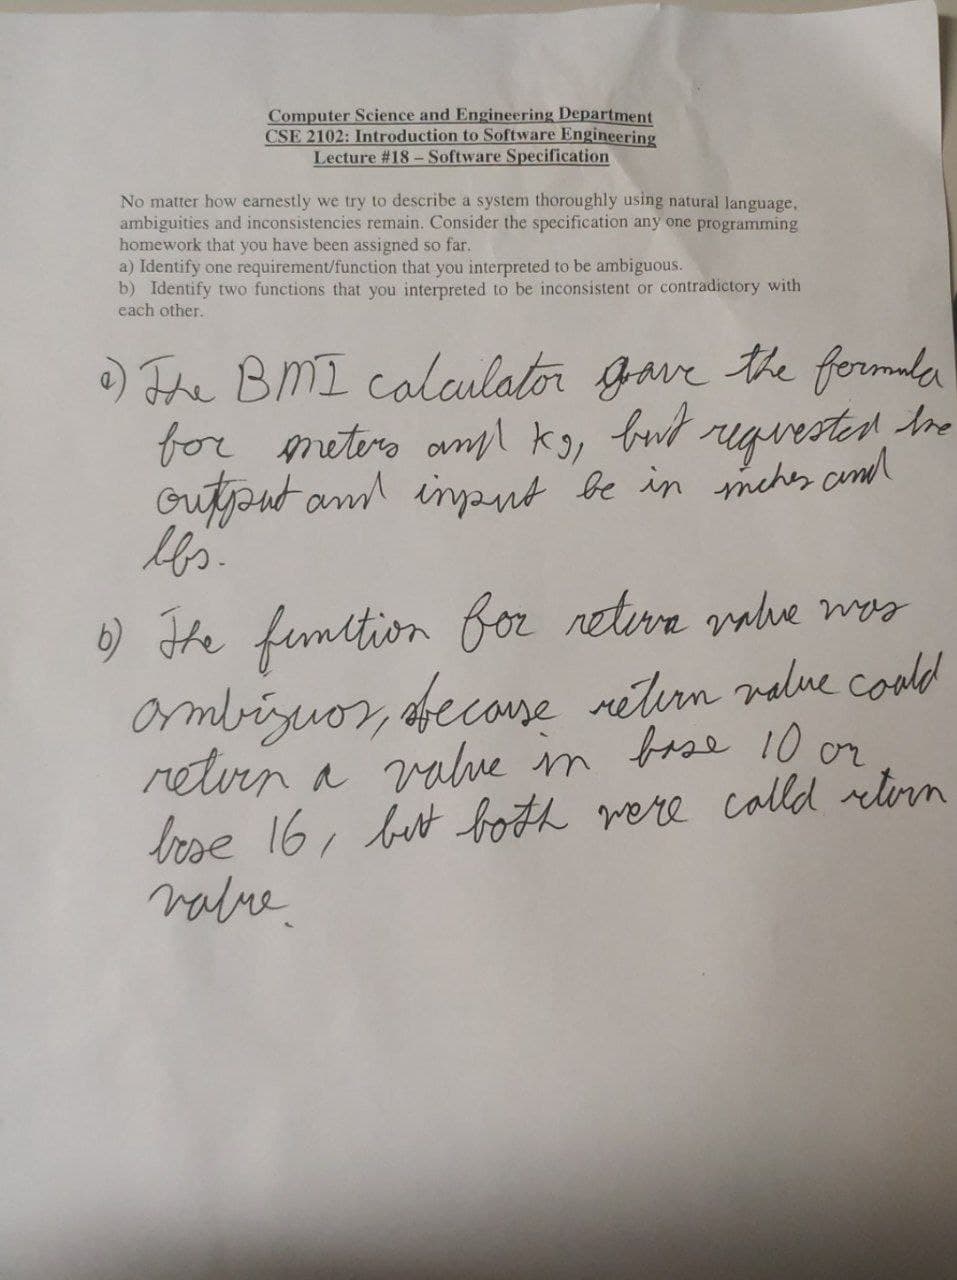 Computer Science and Engineering Department
CSE 2102: Introduction to Software Engineering
Lecture #18 – Software Specification
No matter how earnestly we try to describe a system thoroughly using natural language,
ambiguities and inconsistencies remain. Consider the specification any one programming
homework that you have been assigned so far.
a) Identify one requirement/function that you interpreted to be ambiguous.
b) Identify two functions that you interpreted to be inconsistent or contradictory with
each other.
a) The BMI calculator gave the formula
for meters and kg, but requested the
output and input be in inches and
lbs.
b) The function for return value was
ambiguos, because return value could
return a value in base 10 or
base 16, but both were calld return
value.